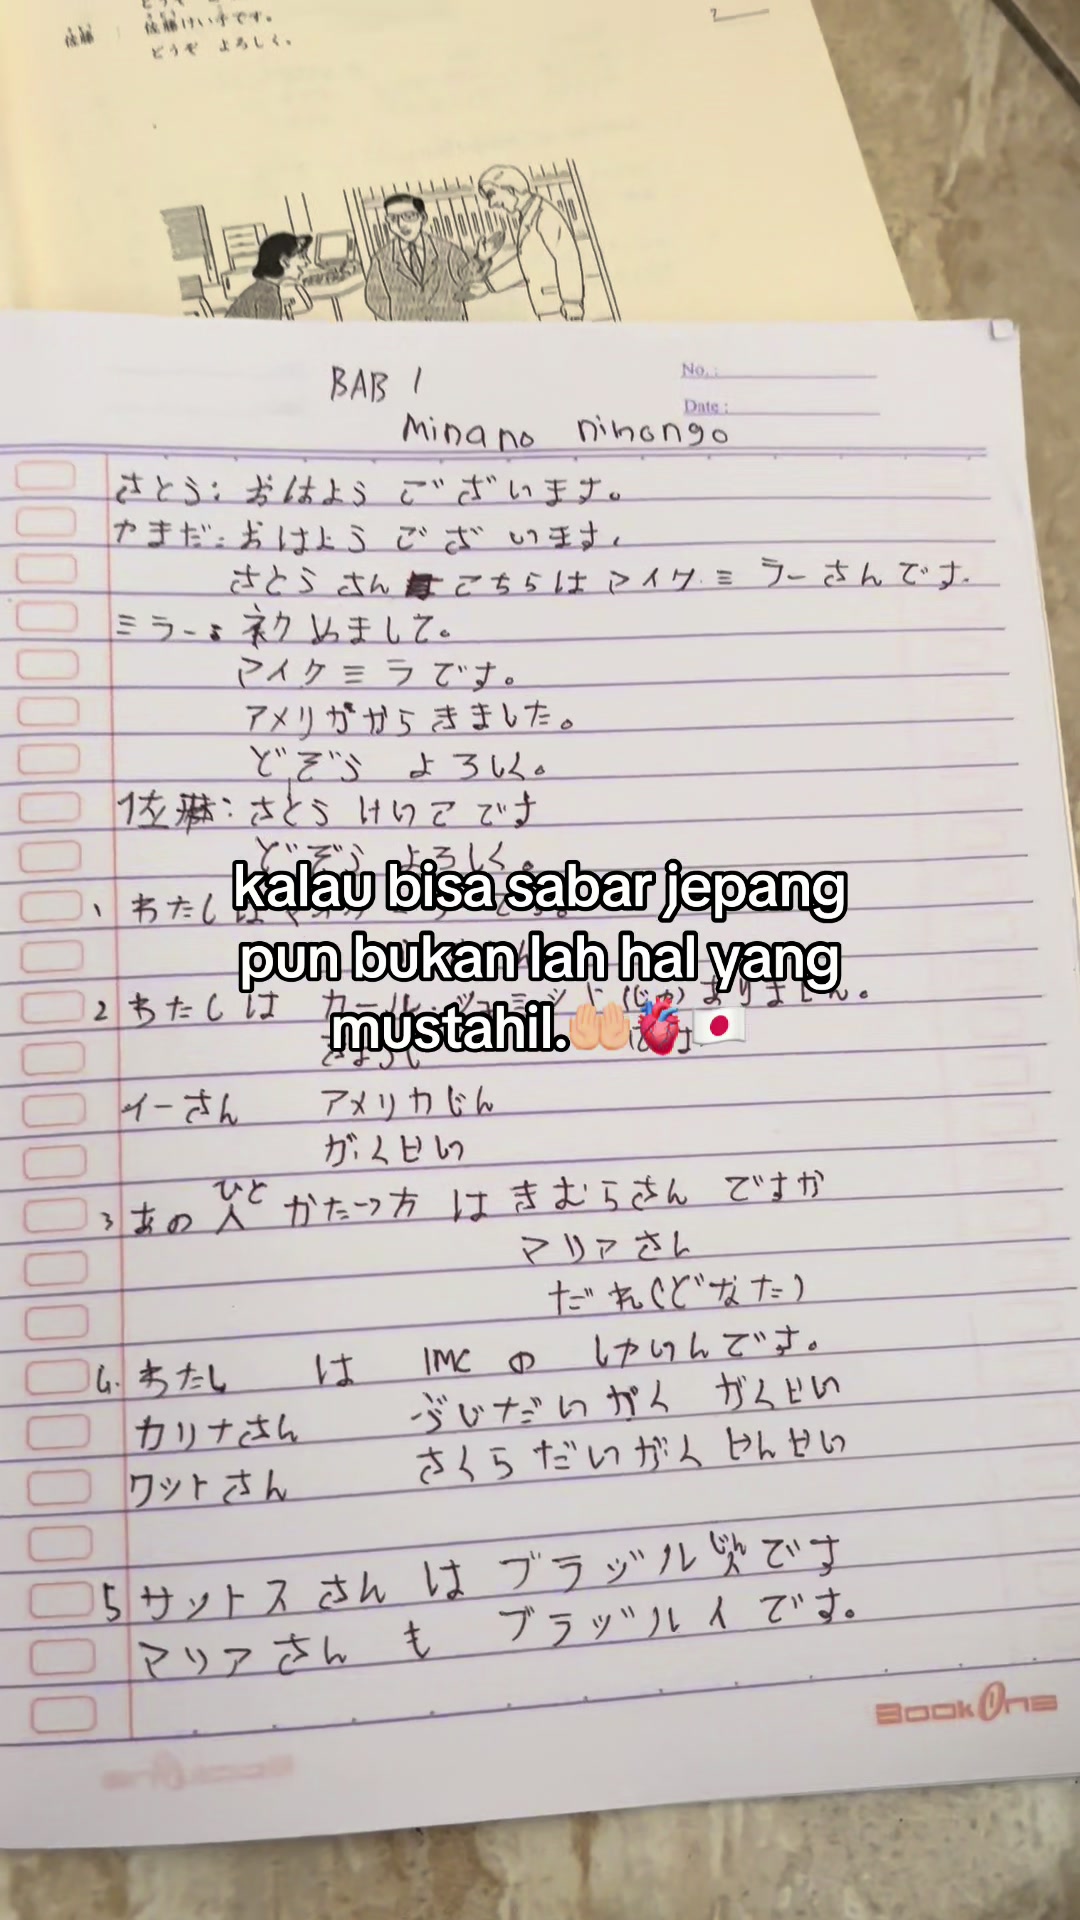 佐藤：佐藤けい子です。
どうぞ よろしく。
2
BAB 1
No. :
Date :
Minano nihongo
さとう: おはよう ございます。
やまだ: おはよう ございます.
さとう さん こちらは マイク ミラーさんです.
ミラー: ネクめまして。
マイク ミラです。
アメリガから きました。
どぞう よろしく。
佐 : さとう けいこ です
どぞう よろしく。
kalau bisa sabar jepang
pun bukan lah hal yang
mustahil.🤲🏼🫀🇯🇵
1 わたしは
2 わたしは カール ありません。
イーさん アメリカじん
がくせい
ひと
3 あの 人 かた→方 は きむらさん ですか
マリアさん
だれ(どなた)
4. わたし は IMC の しゃいんです。
カリナさん ぶじだいがく がくせい
ワットさん さくらだいがく せんせい
じん
5 サントスさん は ブラヅル人です
マリアさん も ブラヅルイです。
BookOne